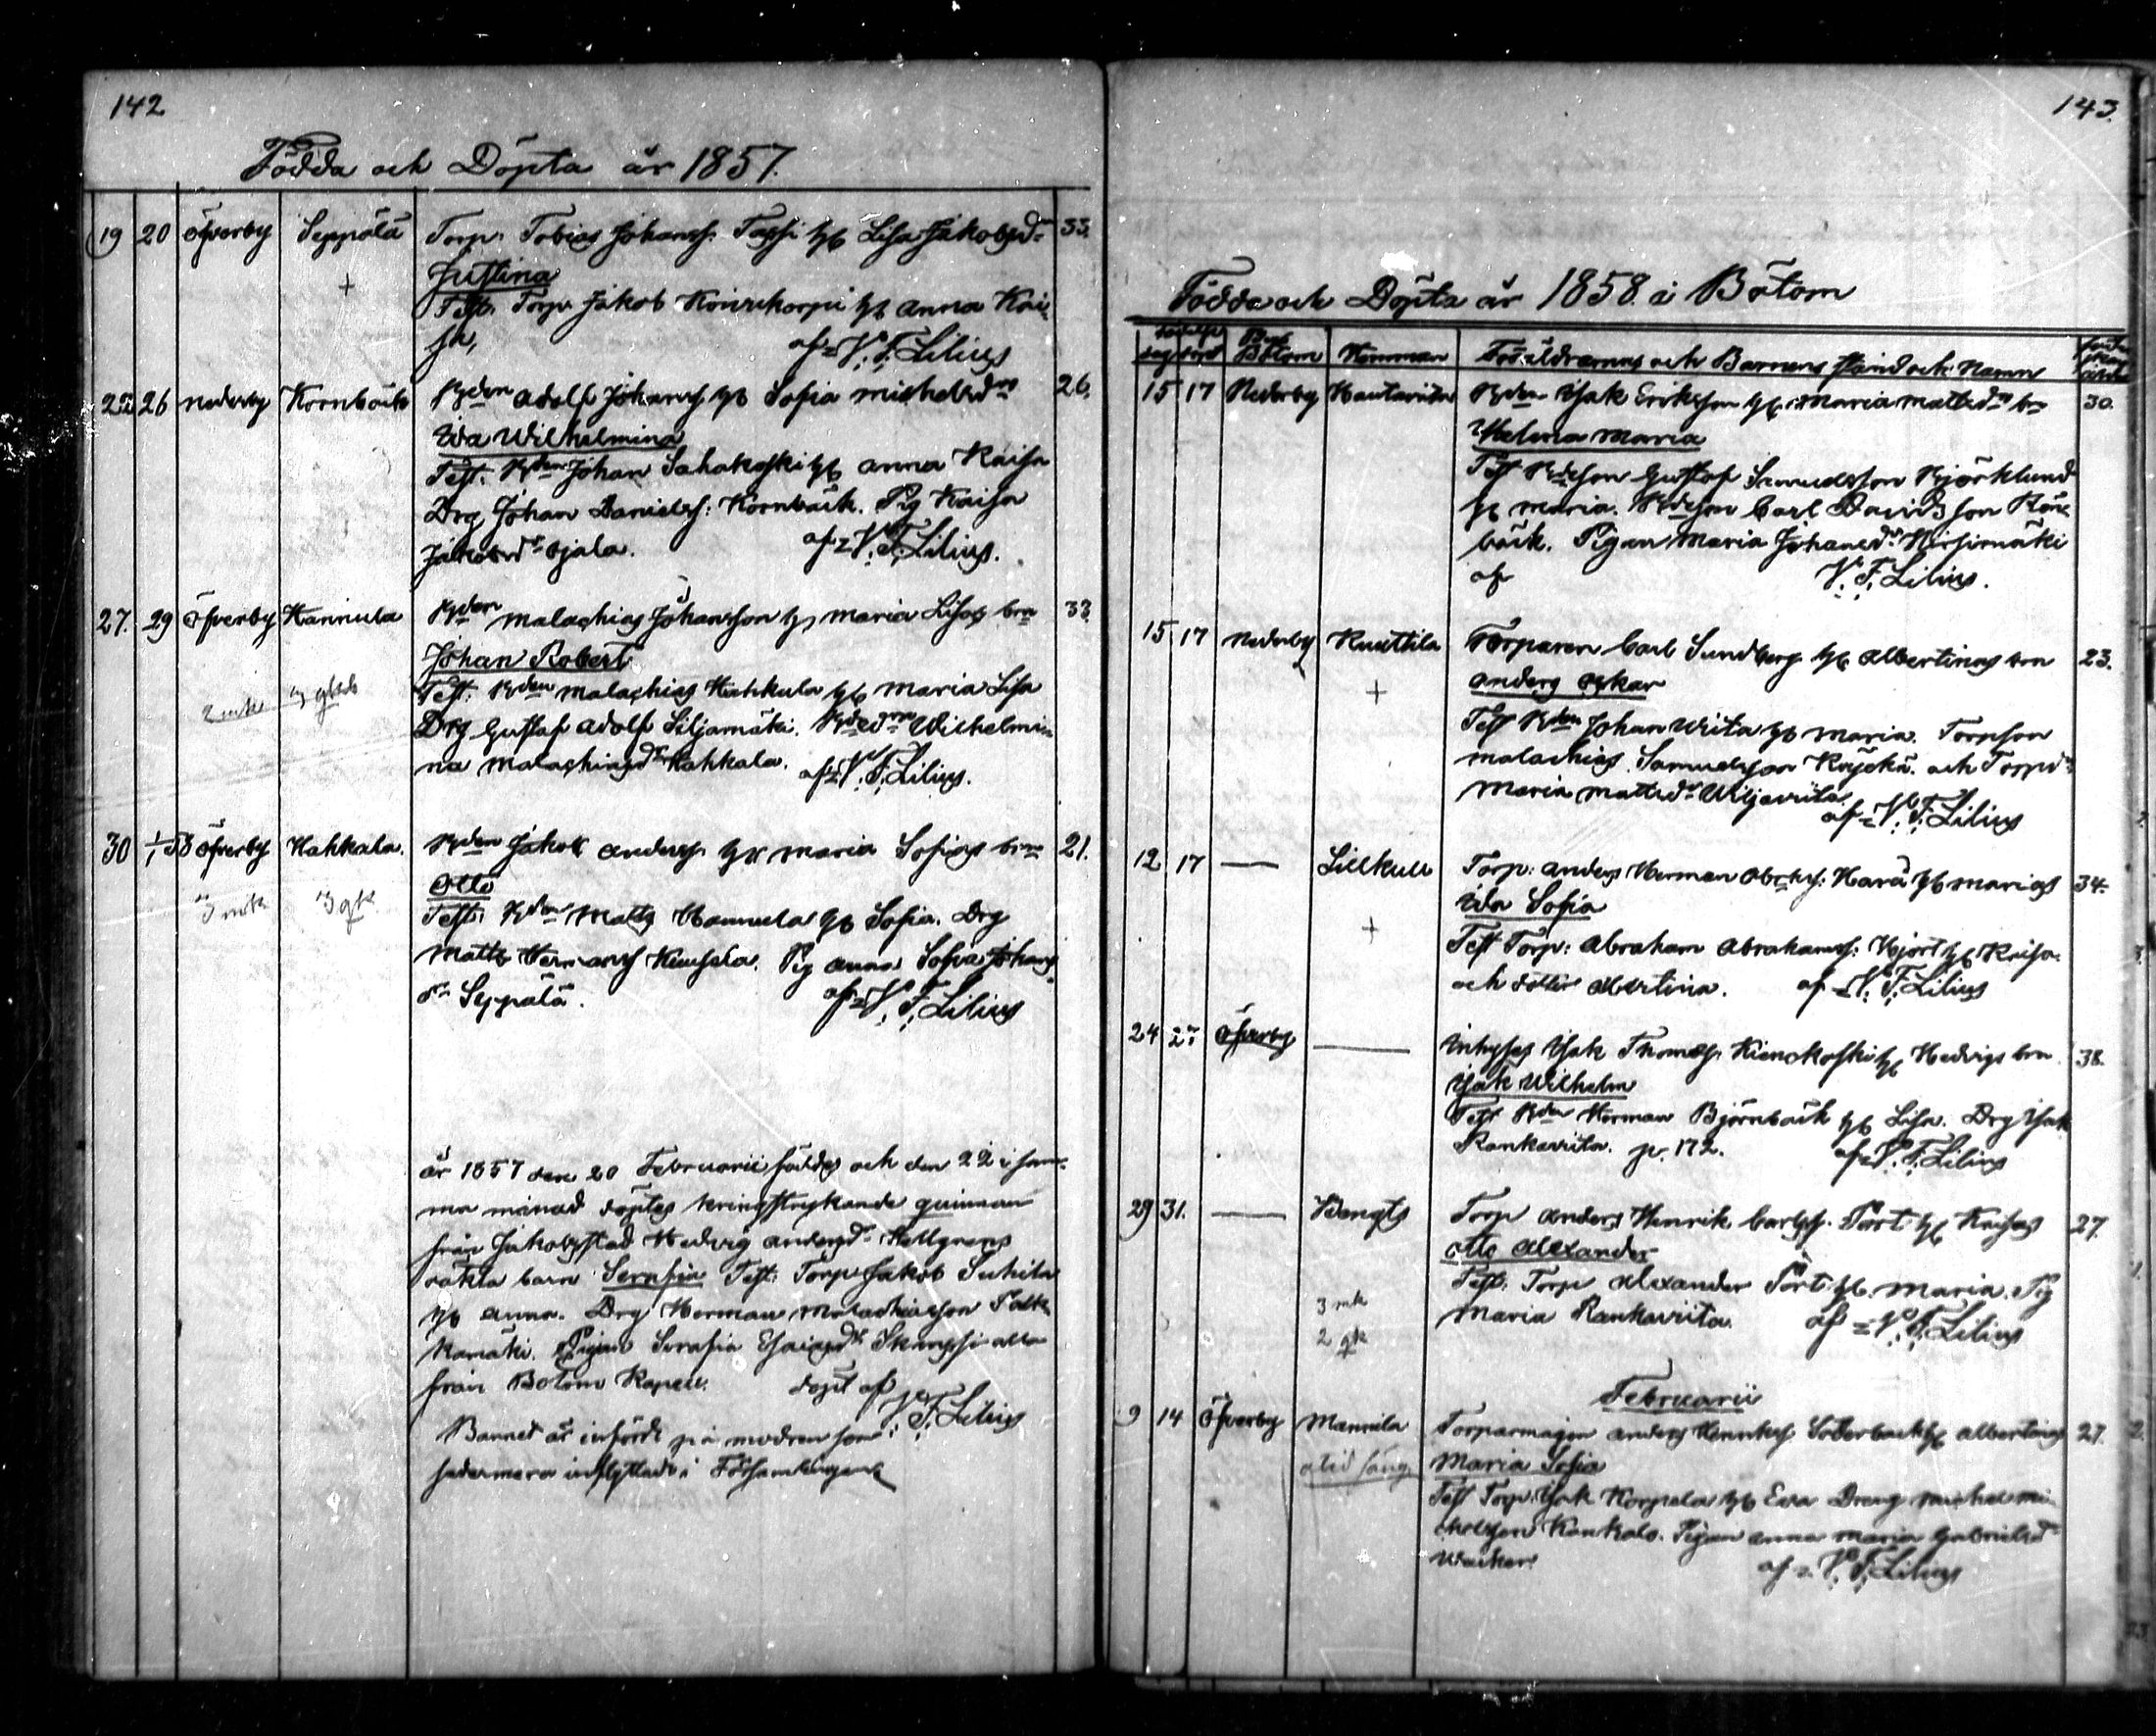 142
Födda och Döpta år 1857.
19 20 Öfverby Seppälä Torp. Tobias Johanss. Tassi h h Lisa Jakobsd:r 33.
Justina
Test. Torp. Jakob Koivikorpi h h Anna Kai-
sa, af V. F. Lilius
25 26 Nederby Kornbäck Bden Adolf Johanss h h Sofia Michelsdrs 26.
Ida Wilhelmina
Test. Bden Johan Sahakoski h h Anna Kaisa
Drg Johan Daniels: Kornbäck. Pig Kaisa
Jakobsdr Ojala. af V. F. Lilius.
27. 29 Öfverby Hannula Bden Malachias Johansson h h Maria Lisas brn 33
Johan Robert
2 mk 3 gkk Test. Bden Malachias Hahkala h h Maria Lisa
Drg Gustaf Adolf Liljamäki. Wilhelmi-
na Malachiasdr Hahkala. af V. F. Lilius.
30 1/1 58 Öfverby Hahkala. Bden Jakob Anderss h h Maria Sofias brn 21.
Otto
3 mk 3 gk Test. Bden Matts Hannula h h Sofia. Drg
Matts Hermans Pig Anna Sofia Johans
dr Seppälä. af V. F. Lilius
År 1857 den 20 Februarii föddes och den 22 i sam-
ma månad döptes kringstrykande quinnan
från Jakobstad Hedvig Andersdr Hellgrens
oäkta barn Serafia Test: Torp Jakob Suhila
h h Anna. Drg Herman Malachiasson
Pigan Serafia Esaiasdr alla
från Bötom Kapell. döpt af V. F. Lilius
Barnet är infördt på modren som
sedermera inflyttade i Församlingen
143.
Födda och Döpta år 1858 i Bötom
Bötom Hemman Föräldrarnas och Barnens stånd och Namn
15 17 Nederby Rautaviita Bden Isak Eriksson h h Maria Mattsdrs br 30.
Helena Maria
Test Bdeson Gustaf Samuelsson Björklund
h h Maria. Bdeson Carl Davidsson Rön-
bäck. Pigan Maria Johansdr Hirsimäki
af V. F. Lilius.
15 17 Nederby Knuttila Torparen Carl Sundberg h h Albertinas brn 23.
Anders Oskar
Test Bden Johan Wiita h h Maria. Torpson
Malachias Samuelsson och Torpdr
Maria Mattsdr Wiljaviita. af V. F. Lilius
12 17 — Lillkull Torp: Anders Herman Abrahs: Harä h h Marias 34.
Ida Sofia
Test Torp: Abraham Abrahamss: Hjort h h Kaisa
och dotter Albertina. af V. F. Lilius
24 27 Öfverby — Inhyses Isak Thomass: Kienokoski h h Hedvigs brn 38.
Isak Wilhelm
Test Bden Herman Björnbäck h h Lisa. Drg Isak
Rankaviita. p. 172. af V. F. Lilius
29 31. — Bengts Torp Anders Henrik Carlss. Pört h h Kaisas 27.
Otto Alexander
3 mk Test. Torp Alexander Pört h h Maria. Pig
2 gk Maria Rankaviita. af V. F. Lilius
Februarii
9 14 Öfverby Mannila Torparmågen Anders Henrikss Söderback h h Albertinas 27.
Maria Sofia
Test Torp. Isak Korpela h h Eva Dreng Michel Mi-
chelsson Kankalo. Pigan Anna Maria Gabrielsd
af V. F. Lilius